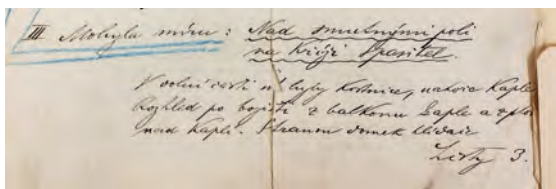 III Mohyla míru: Nad smutnými poli
na kříži Spasitel.
V dolní části byly kostnice, nahoře kaple
Rozhled po bojišti z balkonu kaple a
nad kaplí. Stranou domek hlídače
Listy 3.